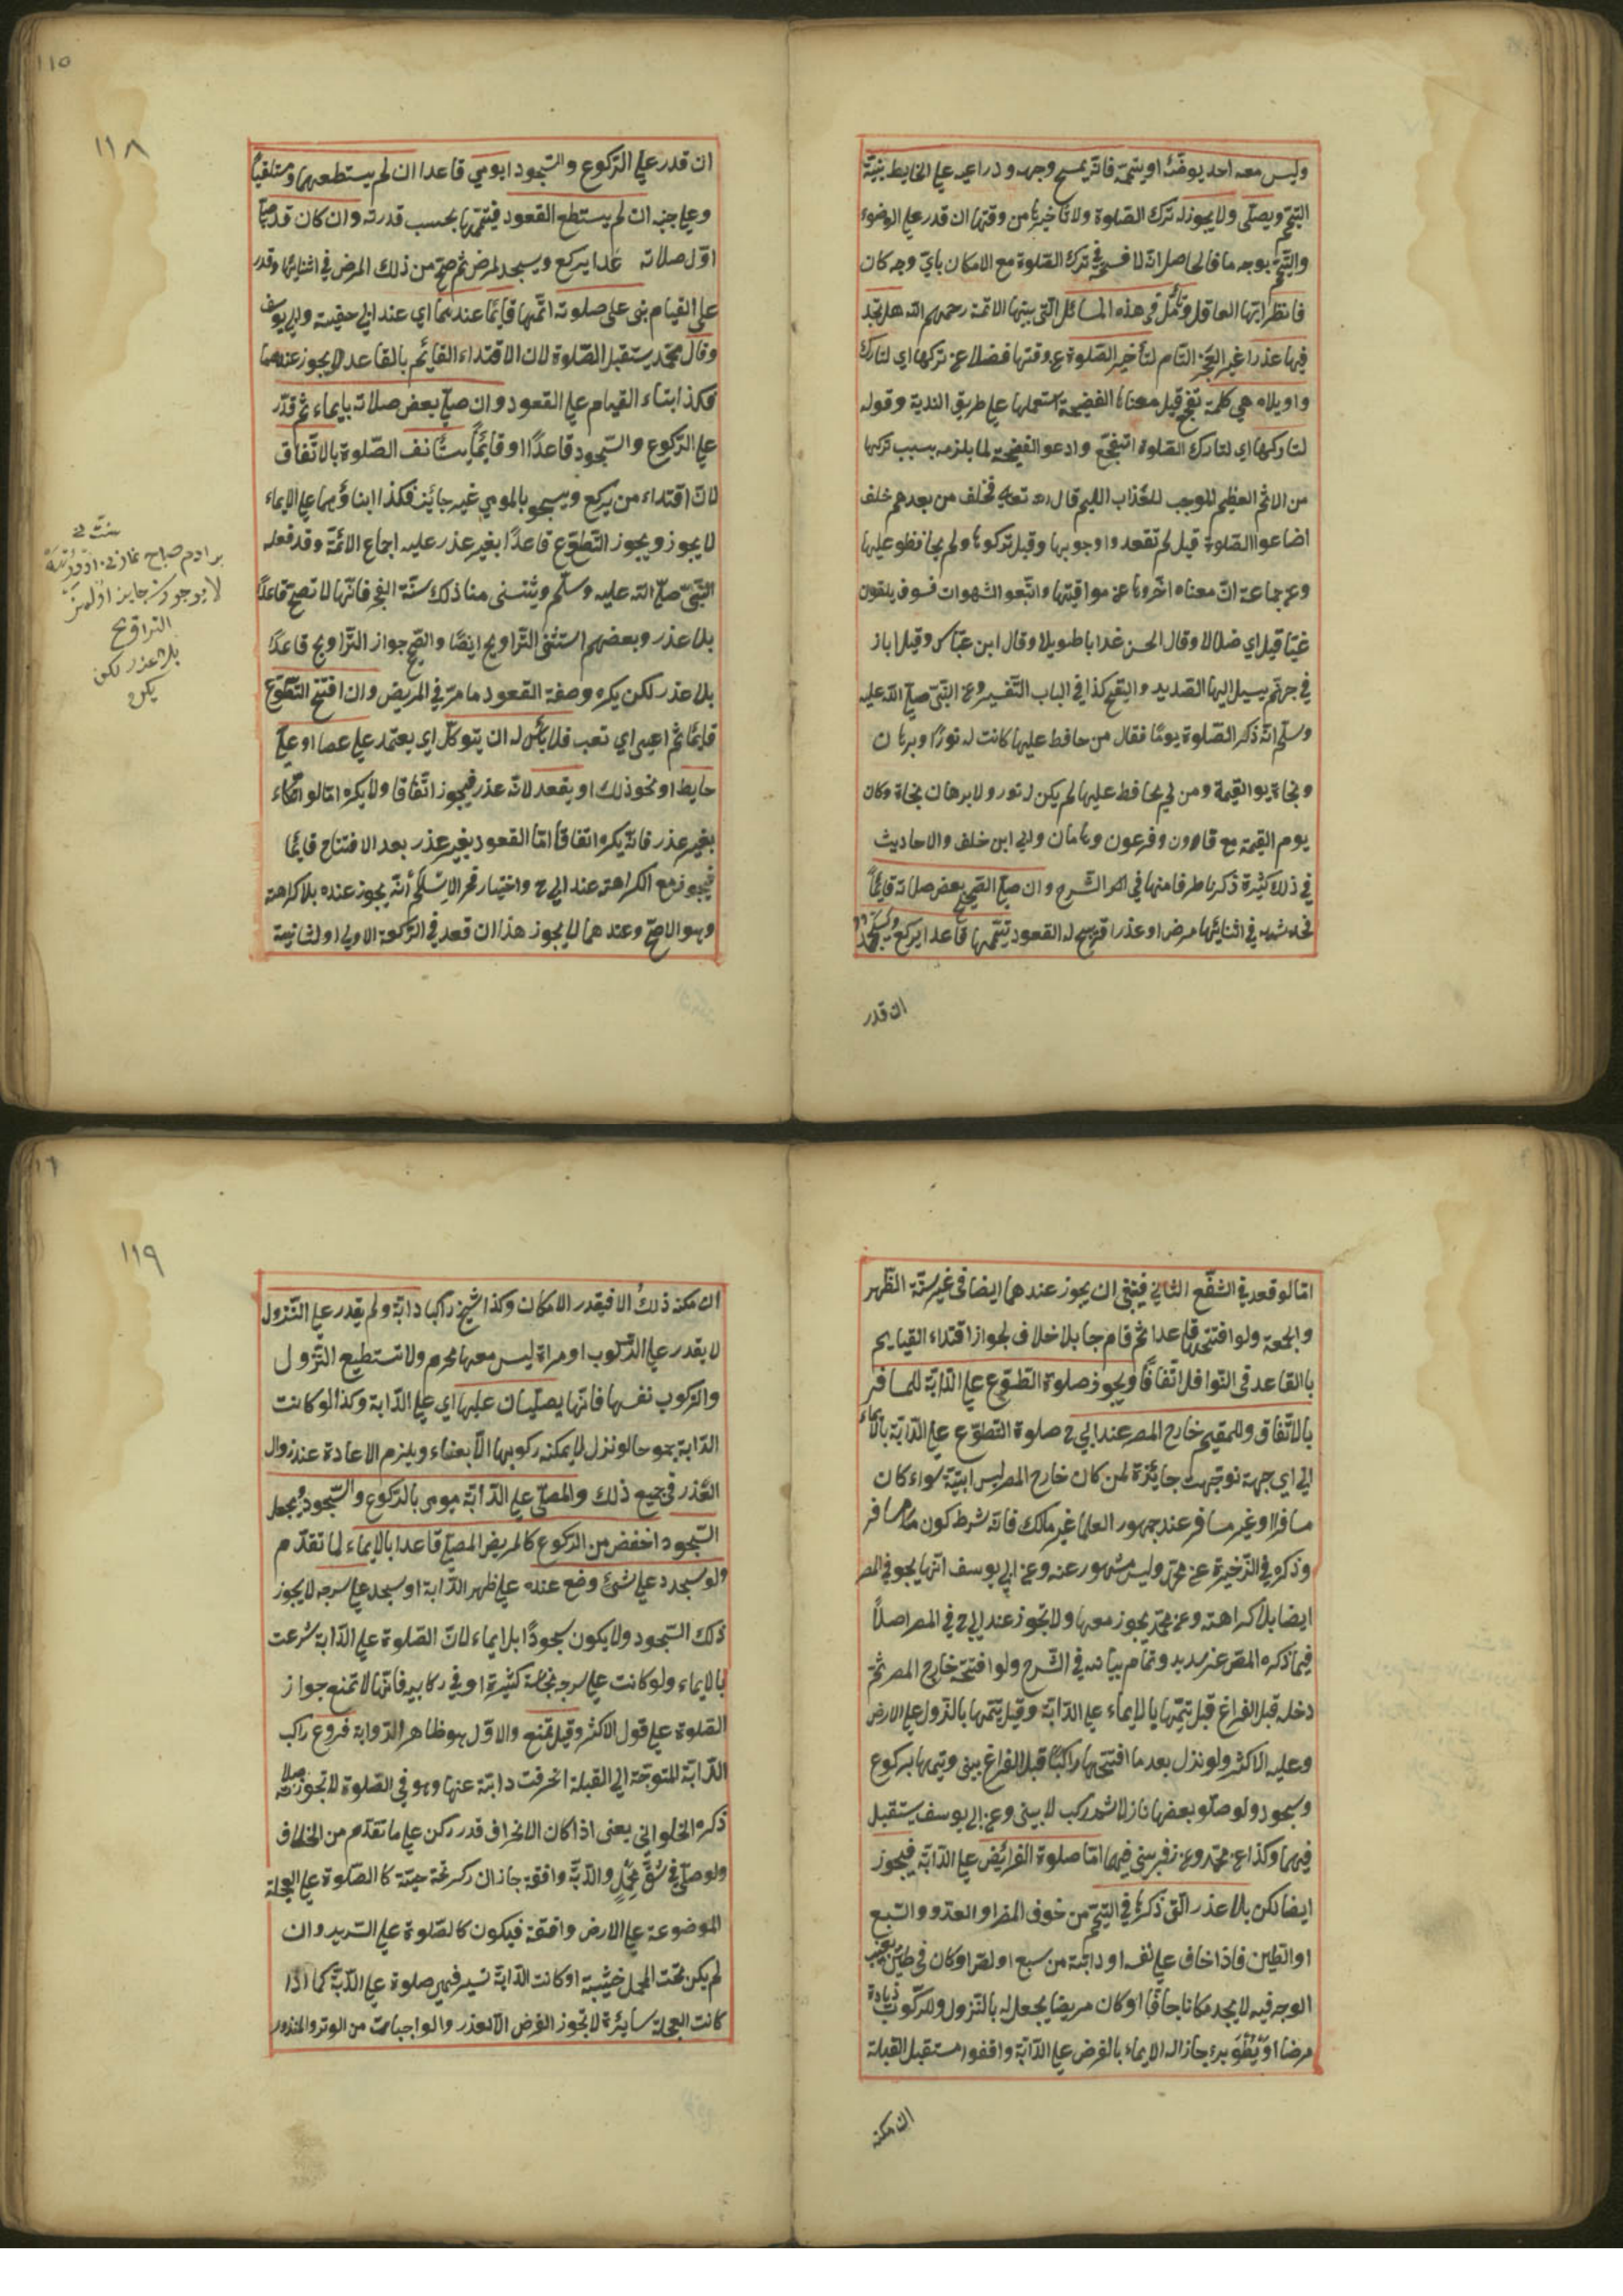 وليس معه احد يوضئه او ييممه فانه يمسح وجهه وذراعيه على الحايط بنية
التيمم ويصلى ولا يجوز له ترك الصلوة ولا تأخيرها من وقتها ان قدر على الوضوء
والتيمم بوجه ما فالحاصل انه لا فسحة فى ترك الصلوة مع الامكان بأي وجه كان
فانظر ايها العاقل وتأمل فى هذه المسائل التى بينها الائمة رحمهم الله هل تجد
فيها عذرا غير العجز التام لتأخير الصلوة عن وقتها فضلا عن تركها اي لتارك
واويلاه هي كلمة تفجع قيل معناها الفضيحة استعملها على طريق الندبة وقوله
لتاركها اي لتارك الصلوة اتفجع وادعو الفضيحة لما يلزمه بسبب تركها
من الاثم العظيم الموجب للعذاب الاليم قال الله تعالى فخلف من بعدهم خلف
اضاعوا الصلوة قيل لم تقعد واوجوبها وقيل تركوها ولم يحافظو عليها
وعن جماعة ان معناه اخروها عن مواقيتها واتبعو الشهوات فسوف يلقون
غيا قيل اي ضلالا وقال الحسن عذابا طويلا وقال ابن عباس وقيل ابار
فى جهنم يسيل اليها الصديد والقيح كذا فى الباب التفسير وعن النبى صلى الله عليه
وسلم انه ذكر الصلوة يومًا فقال من حافظ عليها كانت له نورًا وبرهان
ونجاة يوم القيمة ومن لم يحافظ عليها لم يكن له نور ولا برهان نجاة وكان
يوم القيمة مع قارون وفرعون وهامان وابي ابن خلف والاحاديث
فى ذلك كثيرة ذكرنا طرفا منها فى الشرح وان صلى الصحيح بعض صلاته قائمًا
فحدث به فى اثنائها مرض او عذر اقر يبيح له القعود يتمها قاعدا يركع ويسجد
ان قدر
١١٥
١١٨
ان قدر على الركوع والسجود او يومي قاعدا ان لم يستطعهما ومستلقيا
وعلى جنبه ان لم يستطع القعود فيتمها بحسب قدرته وان كان قد صلى
اول صلاته قاعدا يركع ويسجد لمرض ثم صح من ذلك المرض فى اثنائها وقدر
على القيام بنى على صلوته اتمها قايمًا عندهما اي عند ابي حنيفة وابي يوسف
وقال محمد يستقبل الصلوة لان الاقتداء القايم بالقاعد لا يجوز عنده
فكذا بناء القيام على القعود وان صلى بعض صلاته بايماء ثم قدر
على الركوع والسجود قاعدًا او قايمًا يستأنف الصلوة بالاتفاق
لان اقتداء من يركع ويسجد بالمومي غير جائز فكذا ابناؤهما على الايماء
لا يجوز ويجوز التطوع قاعدًا بغير عذر عليه اجماع الائمة وقد فعله
النبى صلى الله عليه وسلم ويستثنى من ذلك سنة الفجر فانها لا تصح قاعدًا
بلا عذر وبعضهم استثنى التراويح ايضا والصحيح جواز التراويح قاعدًا
بلا عذر لكن يكره وصفة القعود ما مر فى المريض وان افتتح التطوع
قايمًا ثم اعيى اي تعب فلا بأس له ان يتوكل اي يعتمد على عصا او على
حايط او نحو ذلك او يقعد لانه عذر فيجوز اتفاقا ولا يكره اما لو اتكاء
بغير عذر فانه يكره اتفاقا اما القعود بغير عذر بعد الافتتاح قايمًا
فيجوز مع الكراهة عند ابي ح واختيار فخر الاسلام انه يجوز عنده بلا كراهة
وهو الاصح وعندهما لا يجوز هذا ان قعد فى الركعة الاولى او الثانية
لا يوجود جايز اولمز
التراويح
بلا عذر لكن
يكره
اما لو قعد فى الشفع الثاني فينبغى ان يجوز عندهما ايضا فى غير سنة الظهر
والجمعة ولو افتتحها قاعدا ثم قام جاز بلا خلاف لجواز اقتداء القايم
بالقاعد فى النوافل اتفاقًا ويجوز صلوة التطوع على الدابة للمسافر
بالاتفاق وللمقيم خارج المصر عند ابي ح صلوة التطوع على الدابة بالايماء
الى اي جهة توجهت جايزة لمن كان خارج المصر ليس ابنية سواء كان
مسافرا او غير مسافر عند جمهور العلما غير مالك فانه شرط كون مسافر
وذكره فى الذخيرة عن محمد وليس مشهور عنه وعن ابي يوسف انها يجوز فى المصر
ايضا بلا كراهة وعن محمد يجوز معها ولا تجوز عند ابي ح فى المصر اصلاً
فيما ذكره المص غير سديد وتمام بيانه فى الشرح ولو افتتحه خارج المصر ثم
دخله قبل الفراغ قيل يتمها بالايماء على الدابة وقيل يتمها بالنزول على الارض
وعليه الاكثر ولو نزل بعد ما افتتحها راكبًا قبل الفراغ يبنى ويتمها بركوع
وسجود ولو صلو بعضها نازلا ثم ركب لا يبنى وعن ابي يوسف يستقبل
فيهما وكذا عن محمد وعن زفر يبنى فيهما اما صلوة الفرائض على الدابة فيجوز
ايضا لكن بلا عذر التى ذكرها فى التيمم من خوف المضر او العدو والسبع
او الطين فاذا خاف على نفسه او دابته من سبع او لص او كان فى طين يغيب
الوجه فيه لا يجد مكانا جافا او كان مريضا يجعل له بالنزول والركوب زيادة
مرضا او بطؤ برء جاز له الايماء بالفرض على الدابة واقفوا مستقبل القبلة
ان مكنه
١١٩
ان مكنه ذلك الا فبقدر الامكان وكذا شيخ راكبا دابة ولم يقدر على النزول
لا يقدر على الركوب او مراة ليس معها محرم ولا تستطيع النزول
والركوب نفسها فانها يصليان عليها اي على الدابة وكذا لو كانت
الدابة جموحا لو نزل لا يمكنه ركوبها الا بعناء ويلزم الاعادة عند زوال
العذر فى جميع ذلك والمصلى على الدابة يومى بالركوع والسجود ويجعل
السجود اخفض من الركوع كالمريض المصلى قاعدا بالايماء لما تقدم
ولو سجد على شئ وضع عنده على ظهر الدابة او سجد على سرجه لا يجوز
ذلك السجود ولا يكون سجودًا بل ايماء لان الصلوة على الدابة شرعت
بالايماء ولو كانت على سرجه نجاسة كثيرة او فى ركابيه فانها لا تمنع جواز
الصلوة على قول الاكثر وقيل تمنع والاول هو ظاهر الرواية فروع راكب
الدابة المتوجهة الى القبلة انحرفت دابته عنها وهو فى الصلوة لا تجوز صلاته
ذكره الحلواني يعنى اذا كان الانحراف قدر ركن على ما تقدم من الخلاف
ولو صلى فى شق محمل والدابة واقفة جاز ان ركز تحته خشبة كا الصلوة على العجلة
الموضوعة على الارض واقفة فيكون كالصلوة على السرير وان
لم يكن تحت المحمل خشبة او كانت الدابة تسير فهى صلوة على الدابة كما اذا
كانت العجلة سايرة لا تجوز الفرض الا لعذر والواجبات من الوتر والمنذور